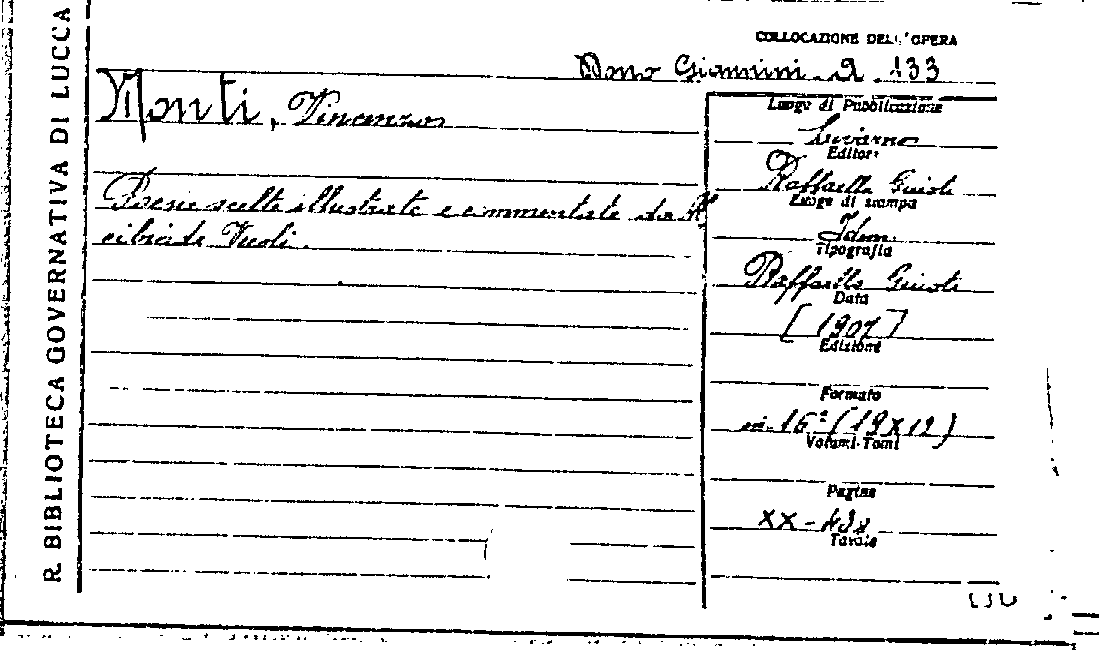 R. BIBLIOTECA GOVERNATIVA DI LUCCA
COLLOCAZIONE DELL'OPERA
Dono Giannini. 2. 133
Monti, Vincenzo
Poesie scelte illustrate e commentate da Al
cibiade Vecoli.
Luogo di Pubblicazione
Livorno
Editore
Raffaello Giusti
Luogo di stampa
Idem.
Tipografia
Raffaello Giusti
Data
[1907]
Edizione
Formato
in-16º (19X12)
Volumi-Tomi
Pagine
XX -
Tavole